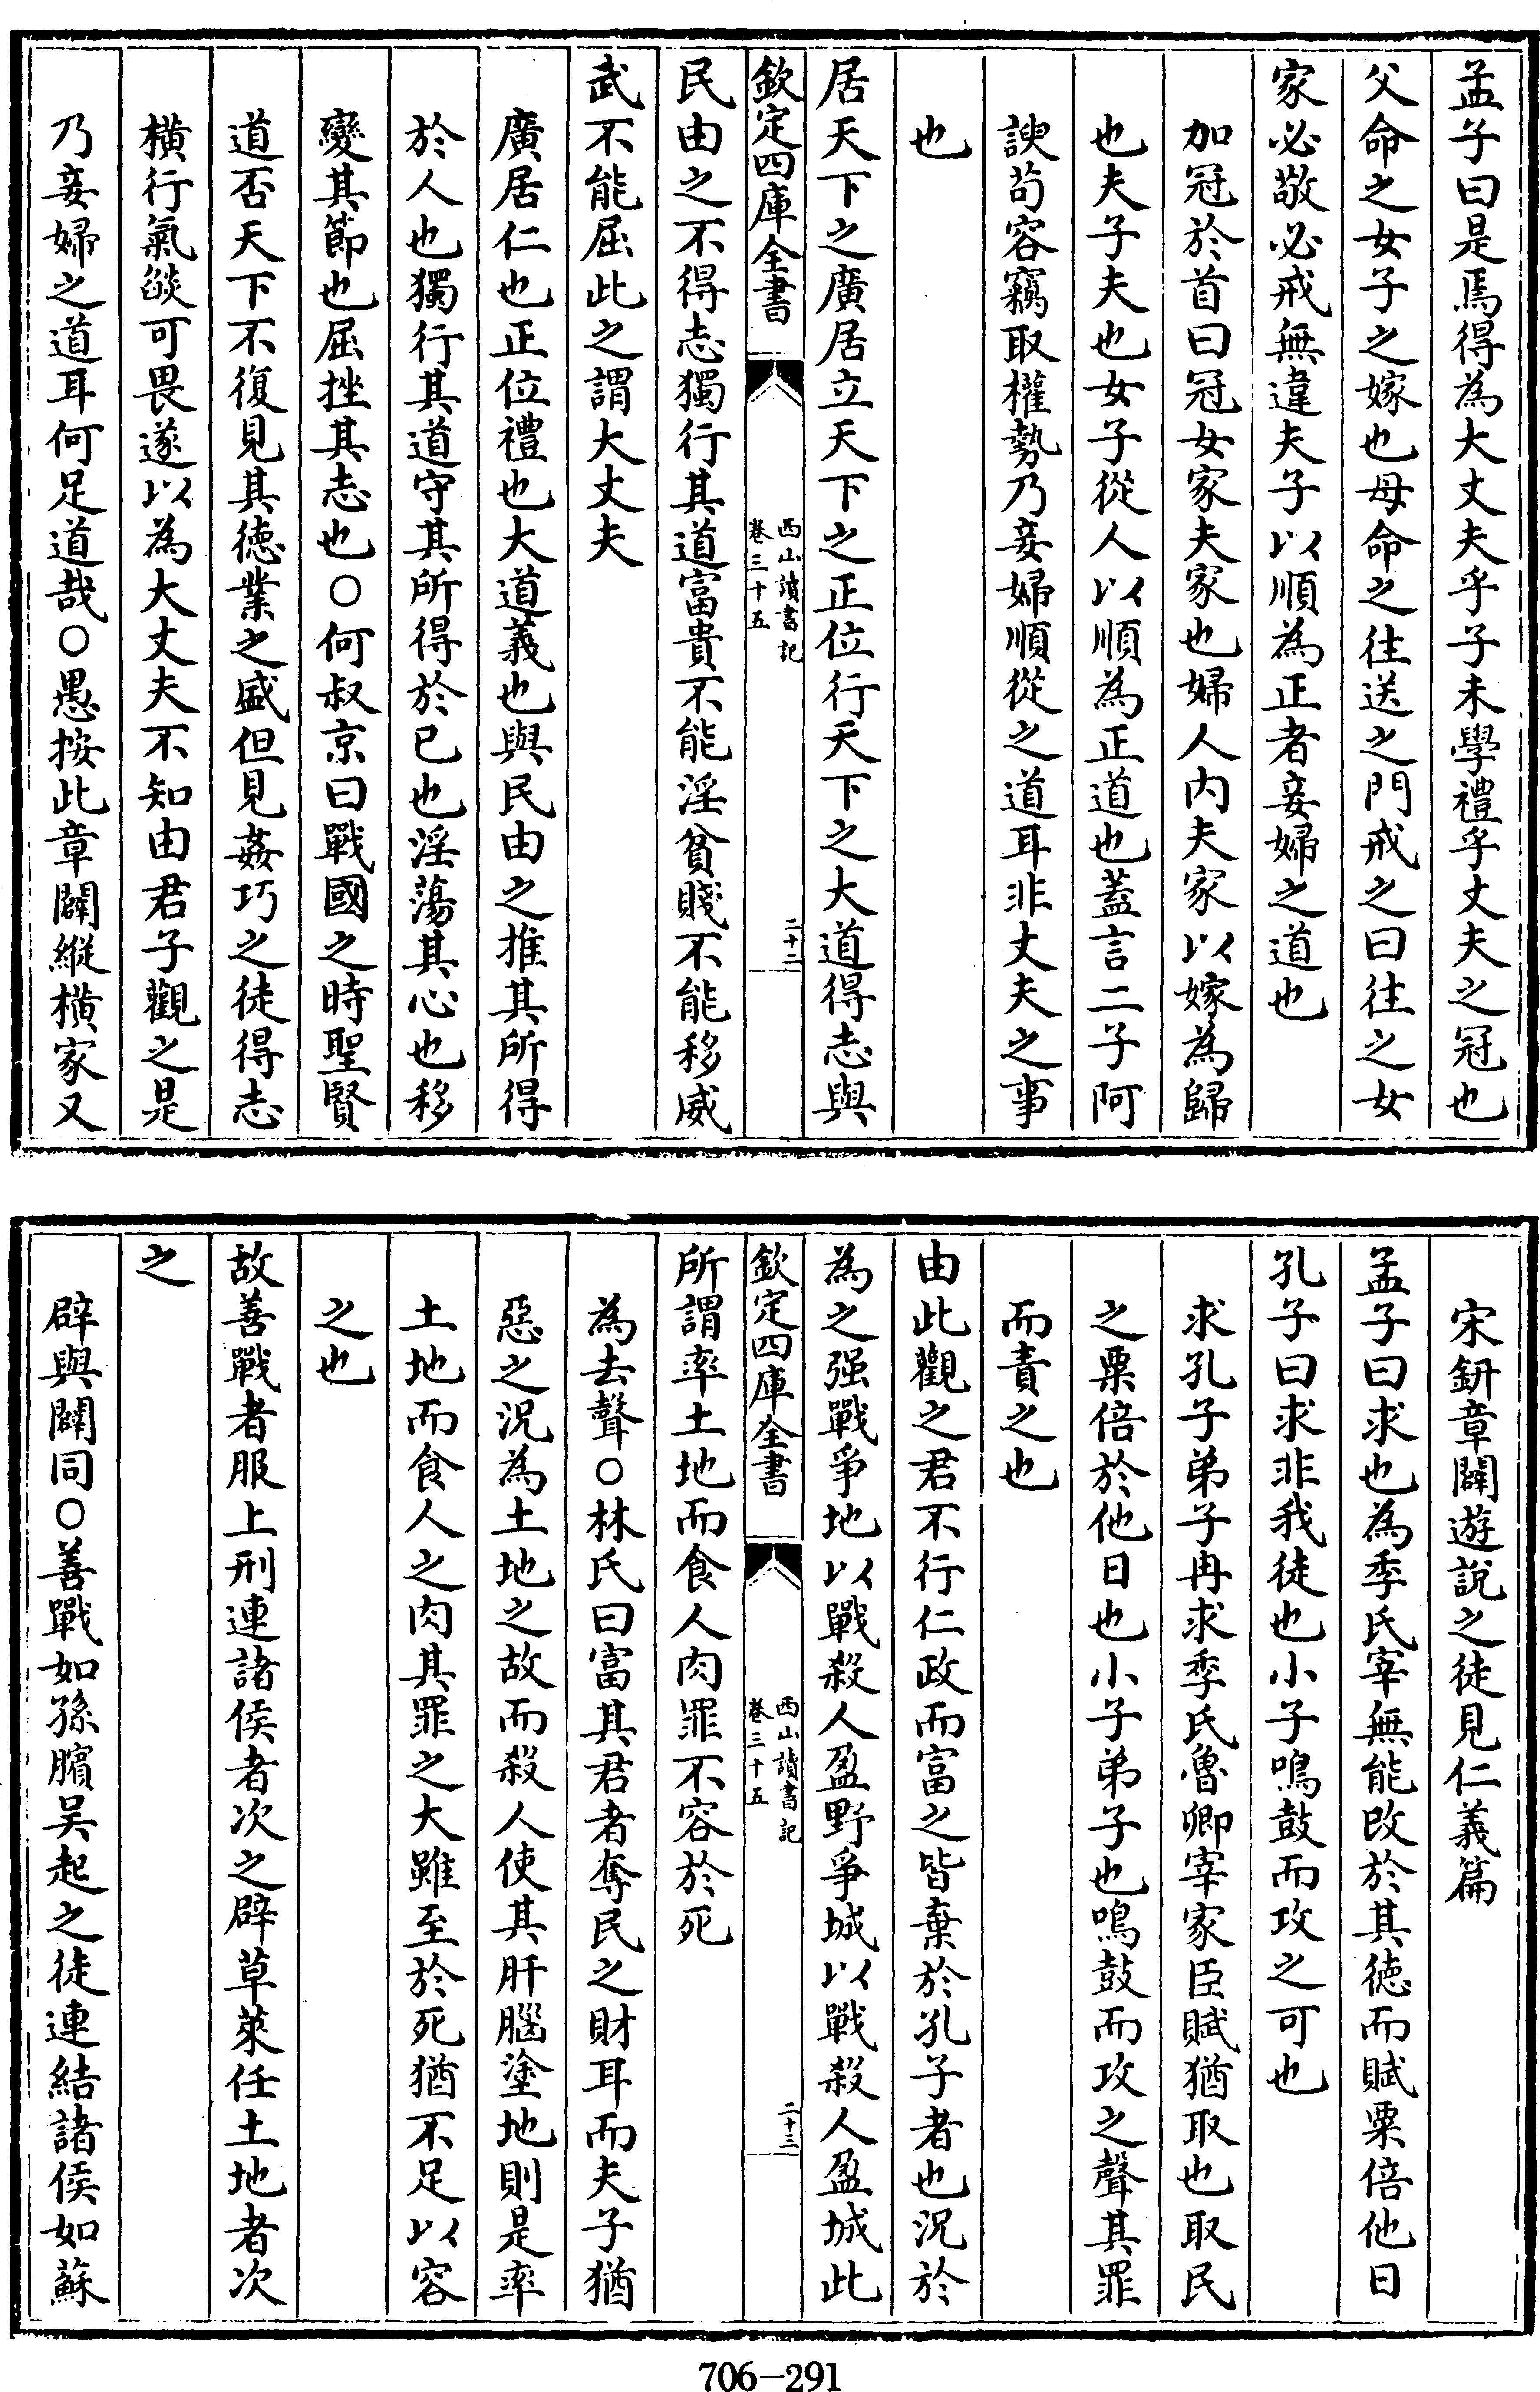 孟子曰是焉得為大丈夫乎子未學禮乎丈夫之冠也
父命之女子之嫁也母命之往送之門戒之曰往之女
家必敬必戒無違夫子以順為正者妾婦之道也
加冠於首曰冠女家夫家也婦人内夫家以嫁為歸
也夫子夫也女子從人以順為正道也蓋言二子阿
諛苟容竊取權勢乃妾婦順從之道耳非丈夫之事
也
居天下之廣居立天下之正位行天下之大道得志與
欽定四庫全書
西山讀書記
卷三十五
二十二
民由之不得志獨行其道富貴不能淫貧賤不能移威
武不能屈此之謂大丈夫
廣居仁也正位禮也大道義也與民由之推其所得
於人也獨行其道守其所得於已也淫蕩其心也移
變其節也屈挫其志也○何叔京曰戰國之時聖賢
道否天下不復見其徳業之盛但見姦巧之徒得志
橫行氣燄可畏遂以為大丈夫不知由君子觀之是
乃妾婦之道耳何足道哉○愚按此章闢縱橫家又
宋鈃章闢遊說之徒見仁義篇
孟子曰求也為季氏宰無能改於其徳而賦粟倍他日
孔子曰求非我徒也小子鳴鼓而攻之可也
求孔子弟子冉求季氏魯卿宰家臣賦猶取也取民
之粟倍於他日也小子弟子也鳴鼓而攻之聲其罪
而責之也
由此觀之君不行仁政而富之皆棄於孔子者也況於
為之强戰爭地以戰殺人盈野爭城以戰殺人盈城此
欽定四庫全書
西山讀書記
卷三十五
二十三
所謂率土地而食人肉罪不容於死
為去聲○林氏曰富其君者奪民之財耳而夫子猶
惡之況為土地之故而殺人使其肝腦塗地則是率
土地而食人之肉其罪之大雖至於死猶不足以容
之也
故善戰者服上刑連諸侯者次之辟草萊任土地者次
之
辟與闢同○善戰如孫臏吴起之徒連結諸侯如蘇
706-291